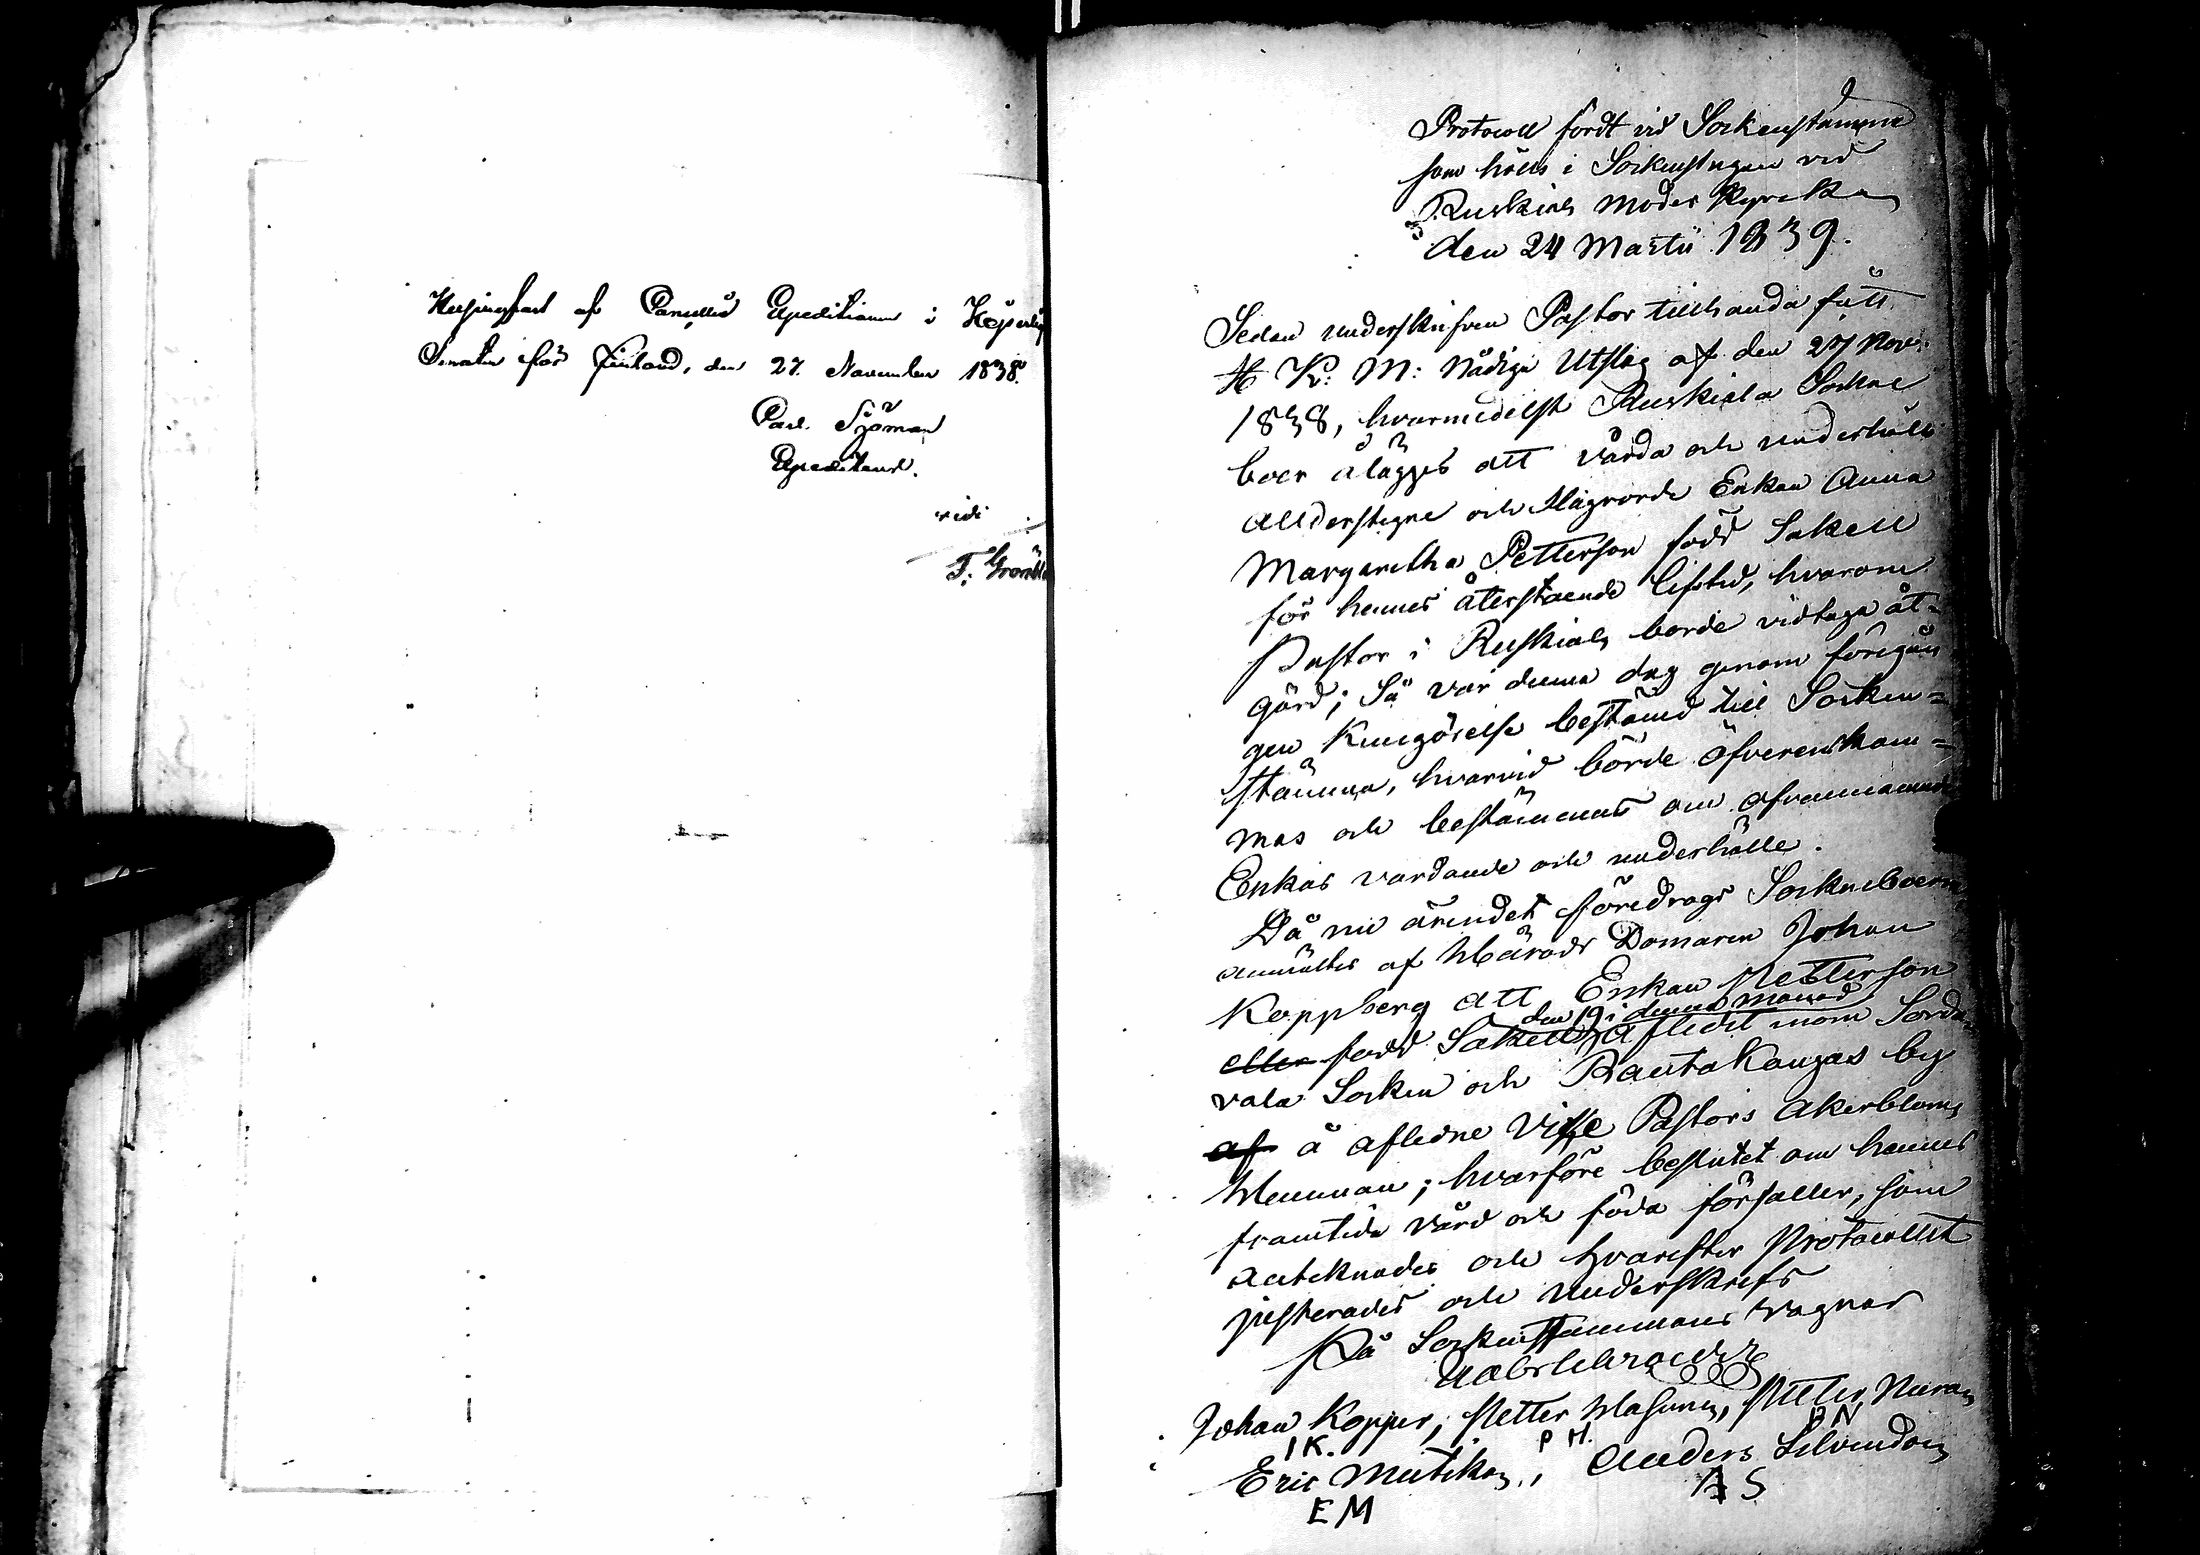 Helsingfors af Cancellie Expeditionen i Kejserlig
Senaten för Finland, den 27. November 1838.
Carl Sjöman
Expeditions.
vidi
F: Grönbl
Protocoll fördt vid Sockenstämma
som hölls i Sockenstugan vid
Ruskiala Moder Kyrcka
den 24 Martii 1839.
Sedan underskrifven Pastor tillhanda fått
H K: M: Nådiga Utslag af den 27 Nov:
1838, hvarmedelst Ruskiala Sockne
boer ålägges att vårda och underhålla
ållderstegne och Enkan Anna
Margaretha Petterson född Sakell
för hennes återstående lifstid, hvarom
Pastor i Ruskiala borde vidtaga åt-
gärd; Så var denna dag genom föregån
gen Kungörelse bestämd till Socken-
stämma, hvarvid börde öfverenskom-
mas och bestämmas om ofvannämnde
Enkas vårdande och underhålle.
Då nu ärendet föredrogs Sockneboerne
anmältes af Härads Domaren Johan
Koppberg att Enkan Petterson
den 19 i denna månad
eller född Sakell aflidit inom Sorda
vala Socken och Rautakangas by
af å aflidne Vice Pastors Åkerbloms
Hemman; hvarföre beslutet om hennes
framtida vård och föda förfaller, som
antecknades och hvarefter Protocollet
justerades och underskrefs
På Sockenstämmans vägnar
Johan Koppus, Petter Hasunen, Petter Nuran
IK. P H. P N
Eric Mutikan, Anders Silvendoin
E M A S